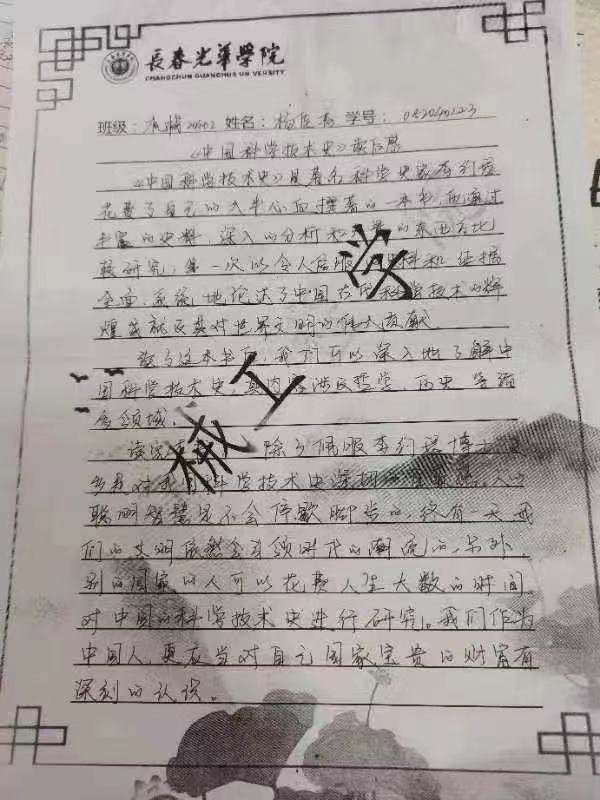 長春光華學院
CHANGCHUN GUANGHUA UNIVERSITY
班级: 姓名: 学号:
《中国科学技术史》读后感
《中国科学技术史》是著名科学史家李约瑟
花费了自己的大半心血撰著的一本书,他通过
丰富的史料,深入的分析和大量的东西方比
较研究,第一次以令人信服的史料和证据
全面、系统地论述了中国古代科学技术的辉
煌成就及其对世界文明的伟大贡献
读了这本书后,我们可以深入地了解中
国科学技术史,其内容涉及哲学、历史等
领域。
读完 除了佩服李约瑟博士
对 科学技术史深
聪明智慧是不会停歇脚步的,终有一天我
们的文明依然会 领时代的潮流的。另外,
别的国家的人可以花费人生大数的时间
对中国的科学技术史进行研究。我们作为
中国人,更应当对自己国家宝贵的财富有
深刻的认识。
械 工 学